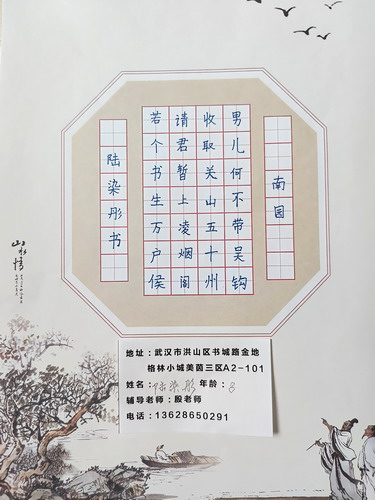 南园
男儿何不带吴钩
收取关山五十州
请君暂上凌烟阁
若个书生万户侯
陆染彤书
山水情
地址：武汉市洪山区书城路金地
格林小城美茵三区A2-101
姓名：陆染彤 年龄：8
辅导老师：殷老师
电话：13628650291